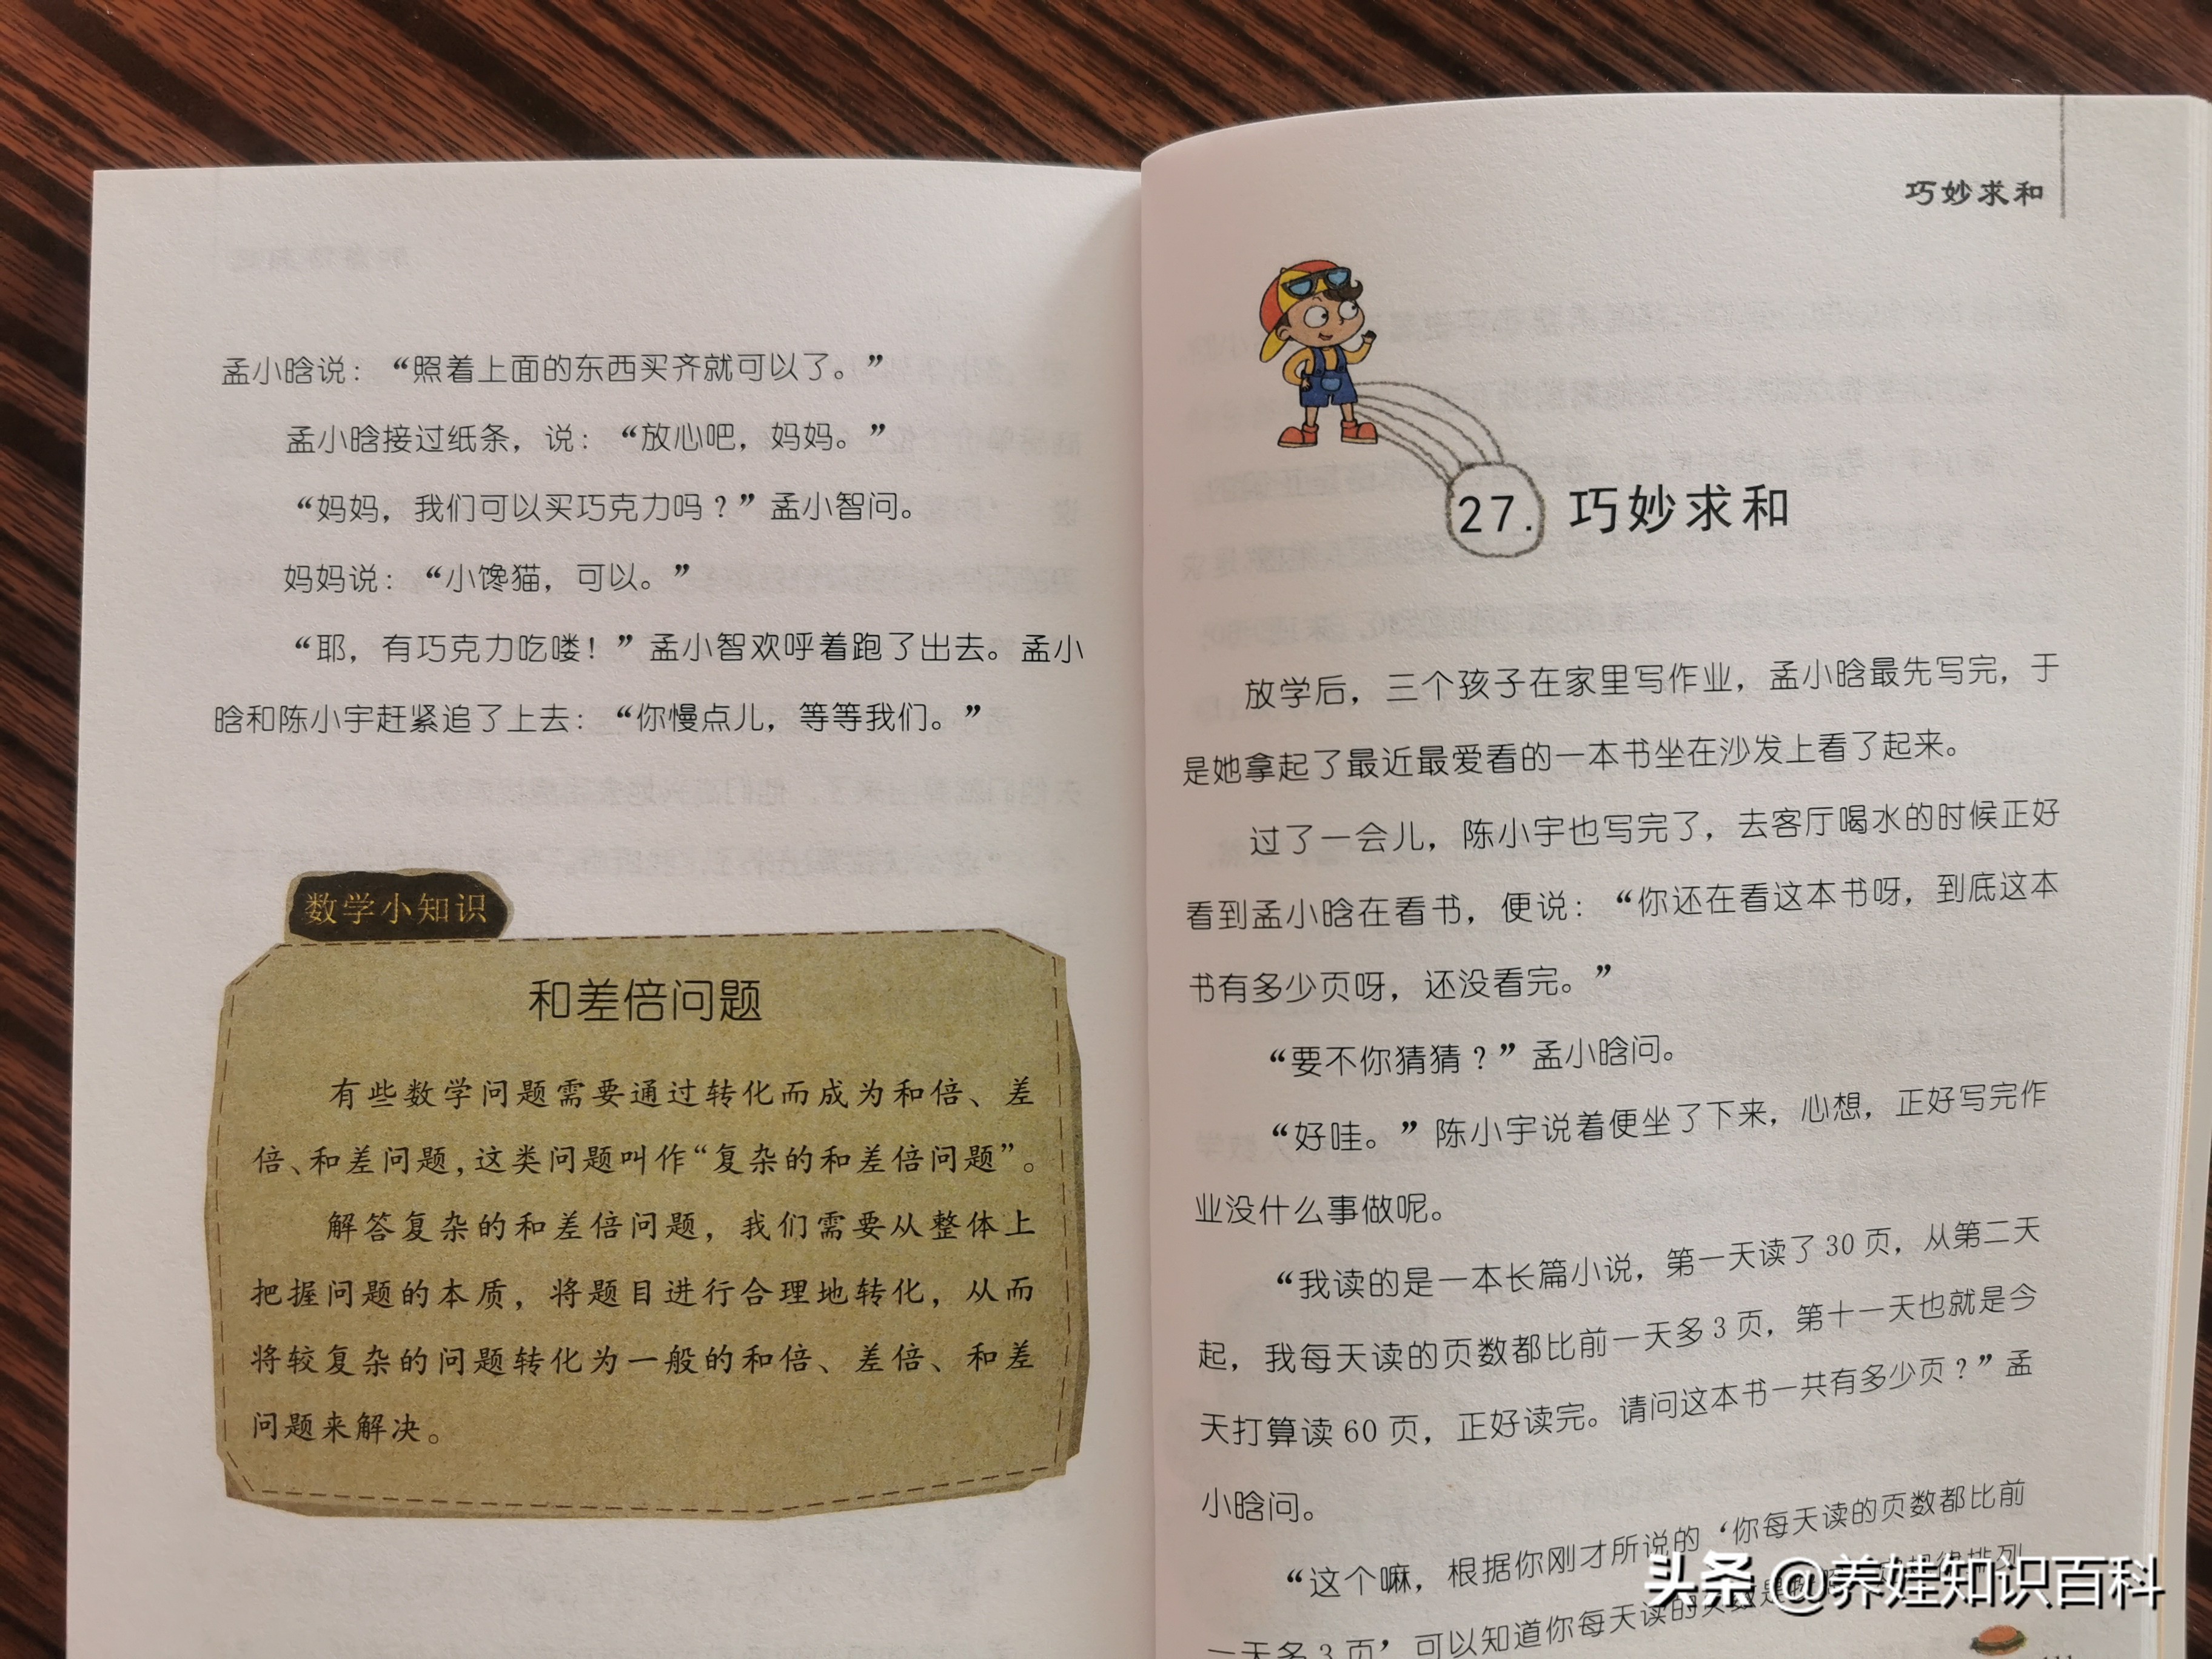 孟小晗说：“照着上面的东西买齐就可以了。”
孟小晗接过纸条，说：“放心吧，妈妈。”
“妈妈，我们可以买巧克力吗？”孟小智问。
妈妈说：“小馋猫，可以。”
“耶，有巧克力吃喽！”孟小智欢呼着跑了出去。孟小
晗和陈小宇赶紧追了上去：“你慢点儿，等等我们。”
数学小知识
和差倍问题
有些数学问题需要通过转化而成为和倍、差
倍、和差问题，这类问题叫作“复杂的和差倍问题”。
解答复杂的和差倍问题，我们需要从整体上
把握问题的本质，将题目进行合理地转化，从而
将较复杂的问题转化为一般的和倍、差倍、和差
问题来解决。
巧妙求和
27. 巧妙求和
放学后，三个孩子在家里写作业，孟小晗最先写完，于
是她拿起了最近最爱看的一本书坐在沙发上看了起来。
过了一会儿，陈小宇也写完了，去客厅喝水的时候正好
看到孟小晗在看书，便说：“你还在看这本书呀，到底这本
书有多少页呀，还没看完。”
“要不你猜猜？”孟小晗问。
“好哇。”陈小宇说着便坐了下来，心想，正好写完作
业没什么事做呢。
“我读的是一本长篇小说，第一天读了30页，从第二天
起，我每天读的页数都比前一天多3页，第十一天也就是今
天打算读60页，正好读完。请问这本书一共有多少页？”孟
小晗问。
“这个嘛，根据你刚才所说的‘你每天读的页数都比前
一天多3页’可以知道你每天读的页数是
头条 @养娃知识百科